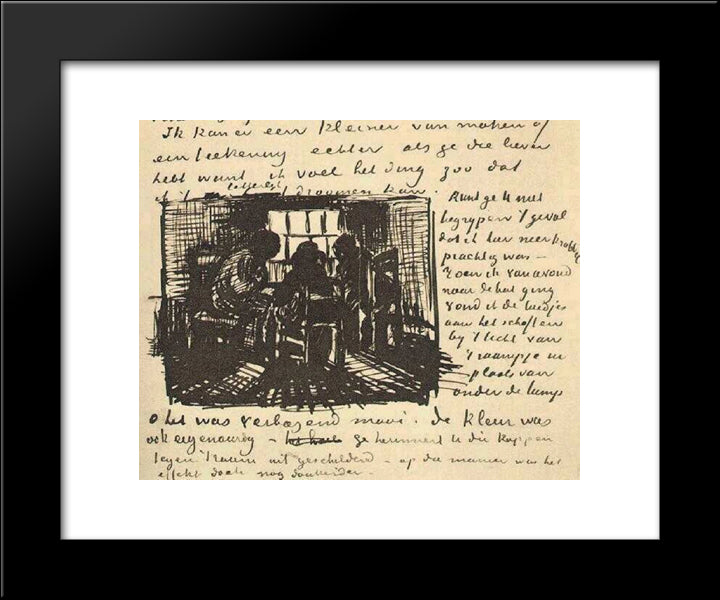 Ik kan er een kleiner van maken of
een teekening echter als ge die liever
hebt want ik voel het ding zoo dat
ik 't letterlijk droomen kan.
Kunt ge U niet
begrijpen 't geval
dat ik hier neerkrabbel
prachtig was –
Toen ik van avond
naar de hut ging
vond ik de luidjes
aan het schoften
by 't licht van
't raampje in
plaats van
onder de lamp
o het was verbazend mooi. de kleur was
ook eigenaardig – ge herinnert U die koppen
tegen 't raam uit geschilderd – op die manier was het
effekt doch nog donkerder –